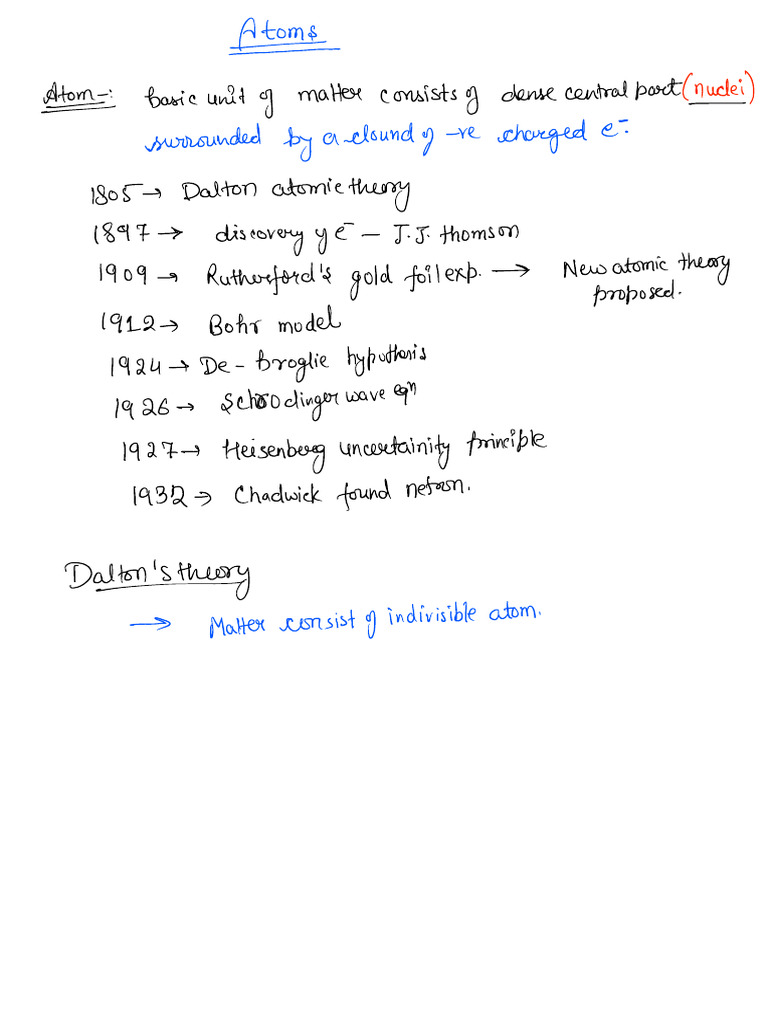 Atoms
Atom-: basic unit of matter consists of dense central part (nuclei)
surrounded by a clound of -ve charged e-.
1805 → Dalton atomic theory
1897 → discovery of e- – J.J. thomson
1909 → Rutherford's gold foil exp. → New atomic theory
proposed.
1912 → Bohr model
1924 → De-Broglie hypothesis
1926 → Schrodinger wave eqn
1927 → Heisenberg uncertainity principle
1932 → Chadwick found netron.
Dalton's theory
→ Matter consist of indivisible atom.